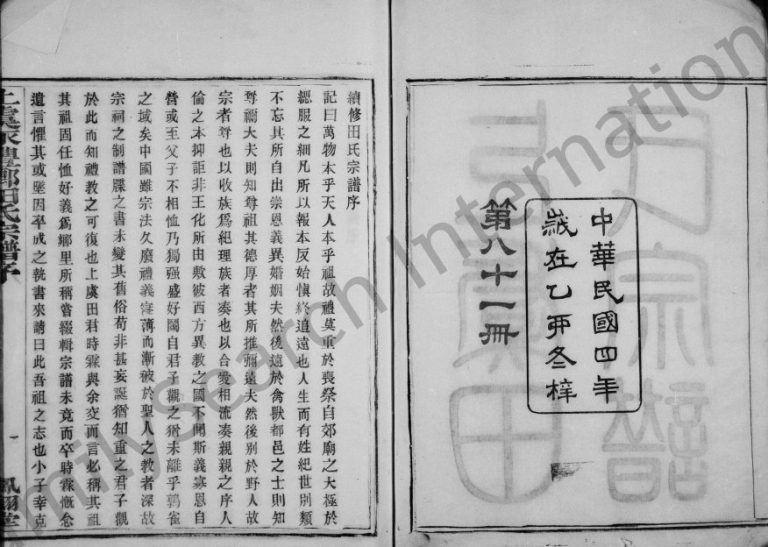 中華民國四年
歲在乙卯冬梓
第八十一冊
續修田氏宗譜序
記曰萬物本乎天人本乎祖故禮莫重於喪祭自郊廟之大極於
緦服之細凡所以報本反始愼終追遠也人生而有姓紀世別類
不忘其所自出崇恩義異婚姻夫然後遠於禽獸都邑之士則知
尊禰大夫則知尊祖其德厚者其所推彌遠夫然後別於野人故
宗者尊也以收族爲紀理族者湊也以合愛相流湊親親之序人
倫之本抑詎非王化所由敷彼西方異教之國不聞斯義寡恩自
營或至父子不相恤乃獨强盛好鬭自君子觀之猶未離乎鶉雀
之域矣中國雖宗法久廢禮義寖薄而漸被於聖人之教者深故
宗祠之制譜牒之書未變其舊俗苟非甚妄誕猶知重之君子觀
於此而知禮教之可復也上虞田君時霖與余交而言必稱其祖
其祖固任恤好義爲鄉里所稱嘗綴輯宗譜未竟而卒時霖慨念
遺言懼其或墜因卒成之執書來請曰此吾祖之志也小子幸克
上虞永豐鄉田氏宗譜序
一
鳳翔堂
Family Search International